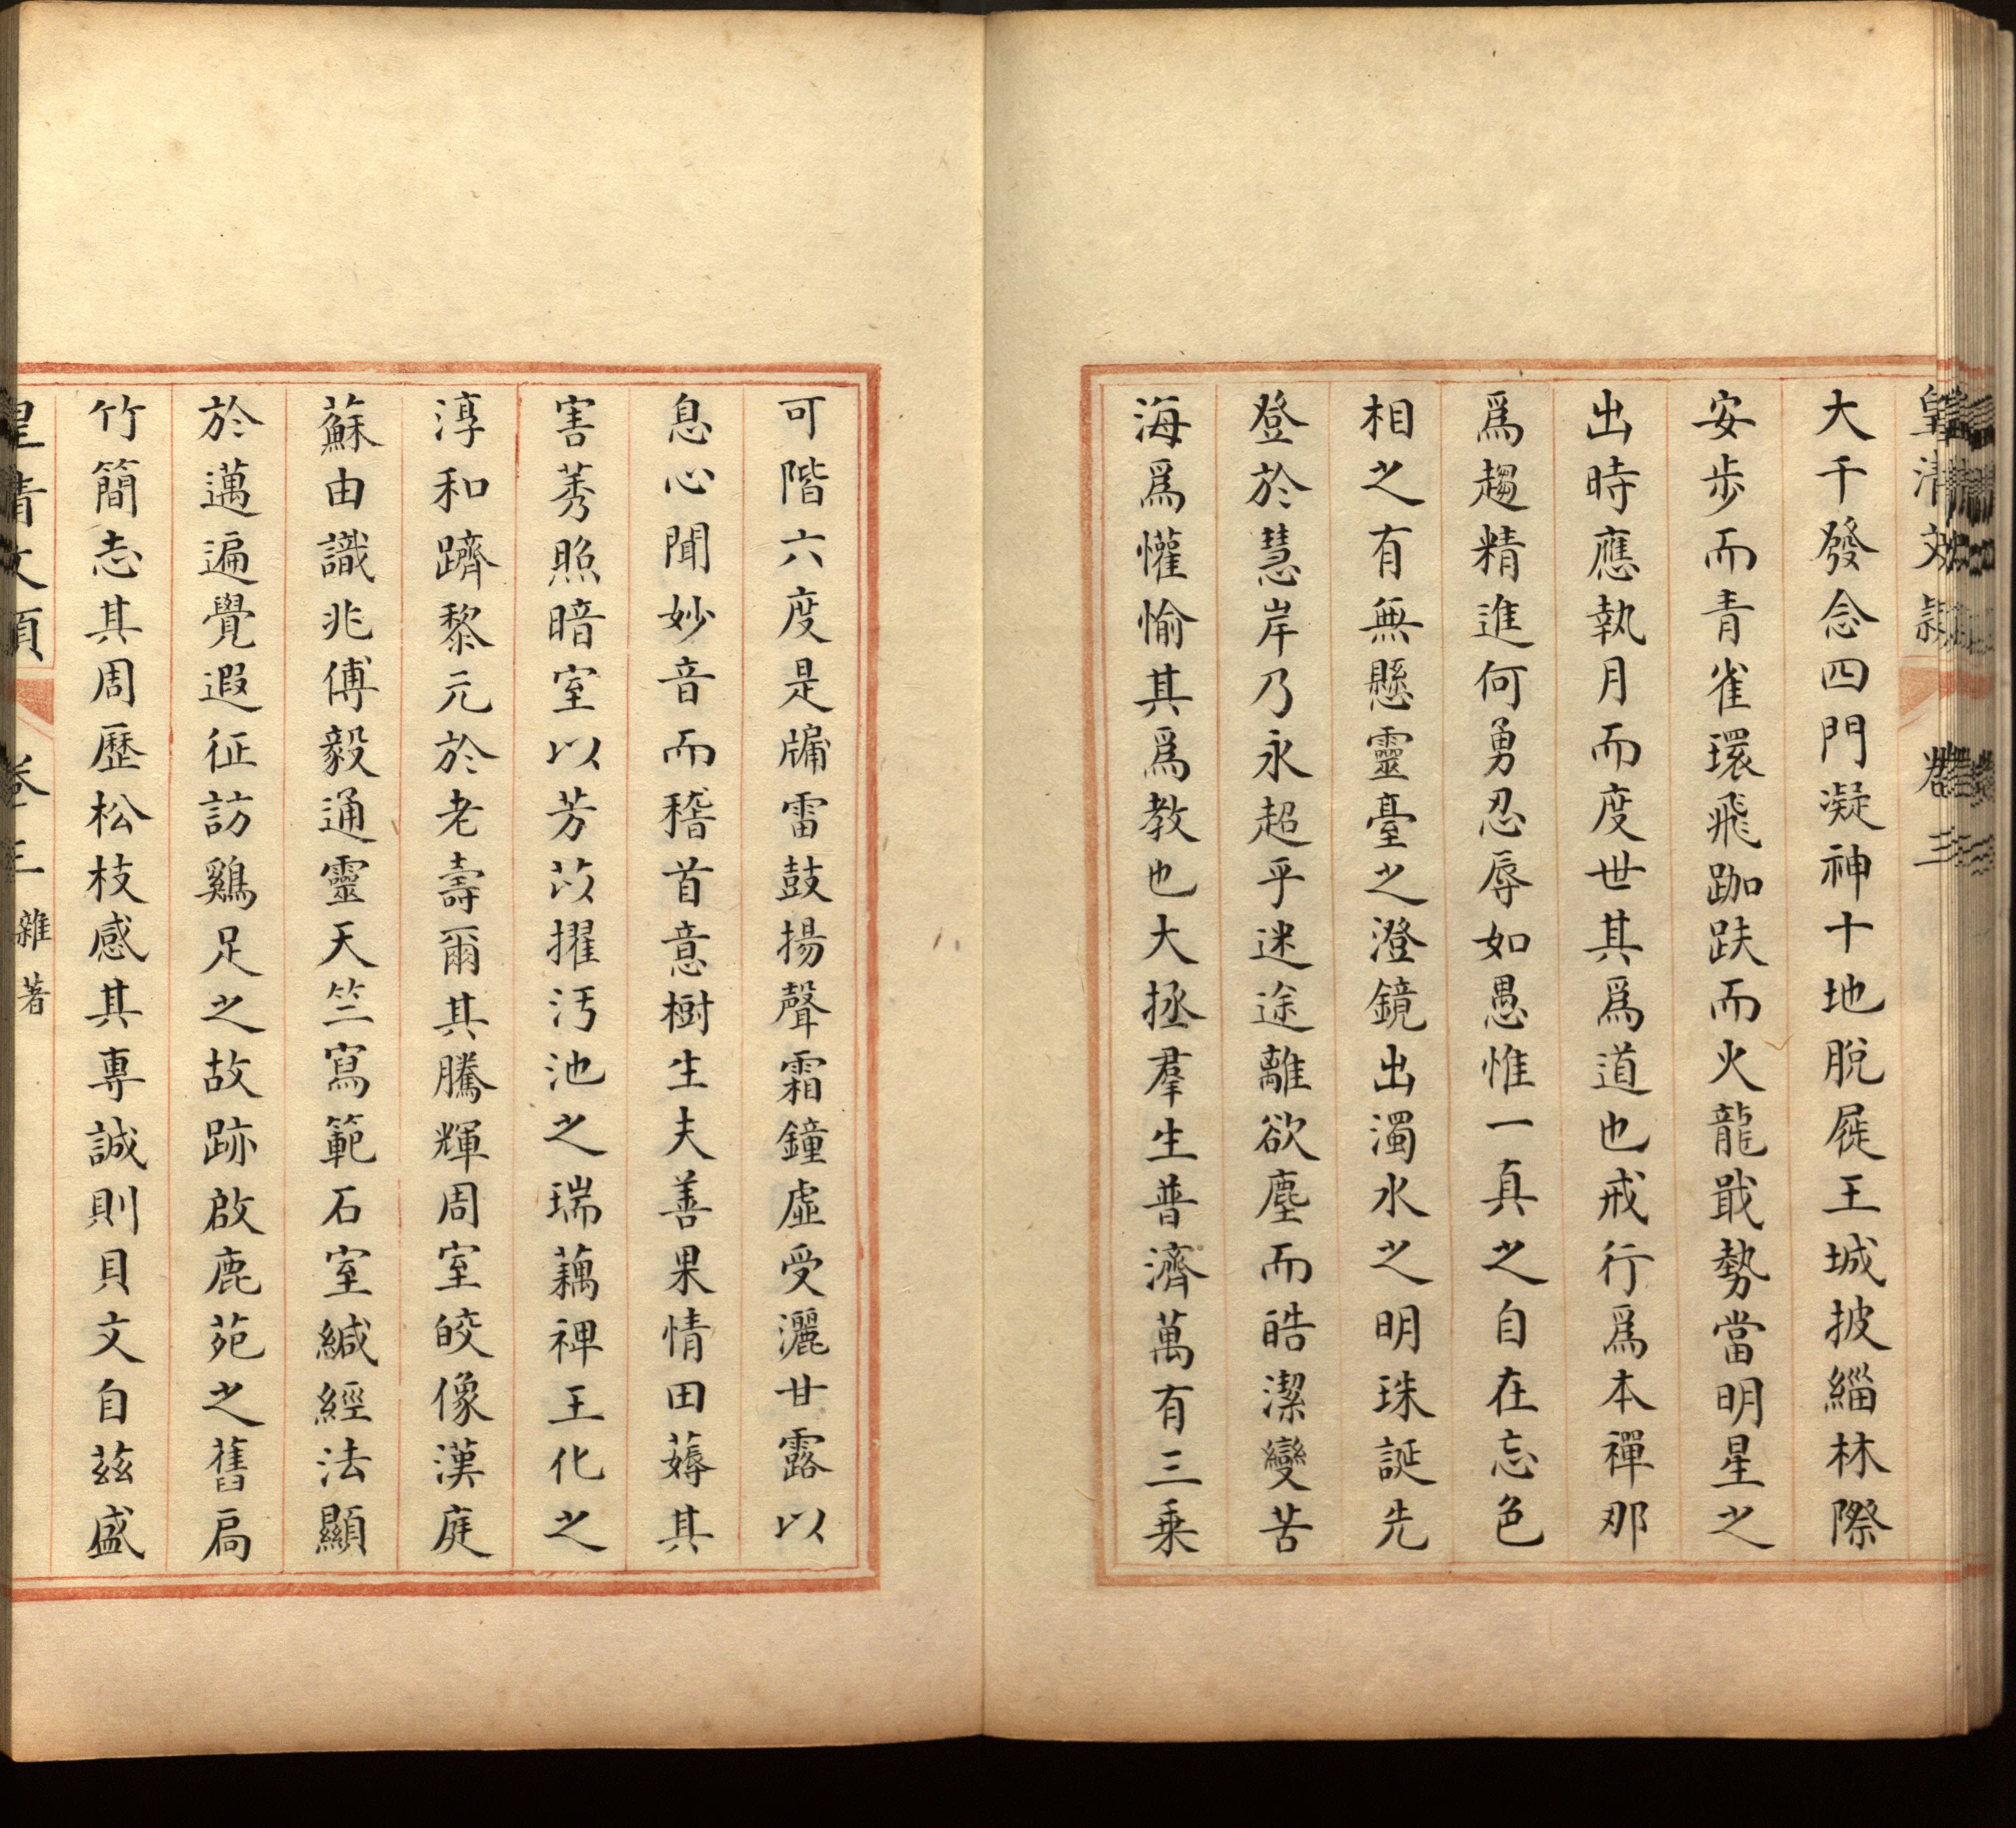 皇清文穎 卷三
大千發念四門凝神十地脫屣王城披緇林際
安步而青雀環飛跏趺而火龍戢勢當明星之
出時應執月而度世其爲道也戒行爲本禪那
爲趨精進何勇忍辱如愚惟一真之自在忘色
相之有無懸靈臺之澄鏡出濁水之明珠誕先
登於慧岸乃永超乎迷途離欲塵而皓潔變苦
海爲懽愉其爲教也大拯羣生普濟萬有三乗
可階六度是牖雷鼓揚聲霜鐘虛受灑甘露以
息心聞妙音而稽首意樹生夫善果情田薅其
害莠照暗室以芳苡擢汚池之瑞藕裨王化之
淳和躋黎元於老壽爾其騰輝周室皎像漢庭
蘇由識兆傅毅通靈天竺寫範石室緘經法顯
於邁遍覺遐征訪鷄足之故跡啟鹿苑之舊扃
竹簡志其周歷松枝感其專誠則貝文自茲盛
皇清文穎 卷三 雜著